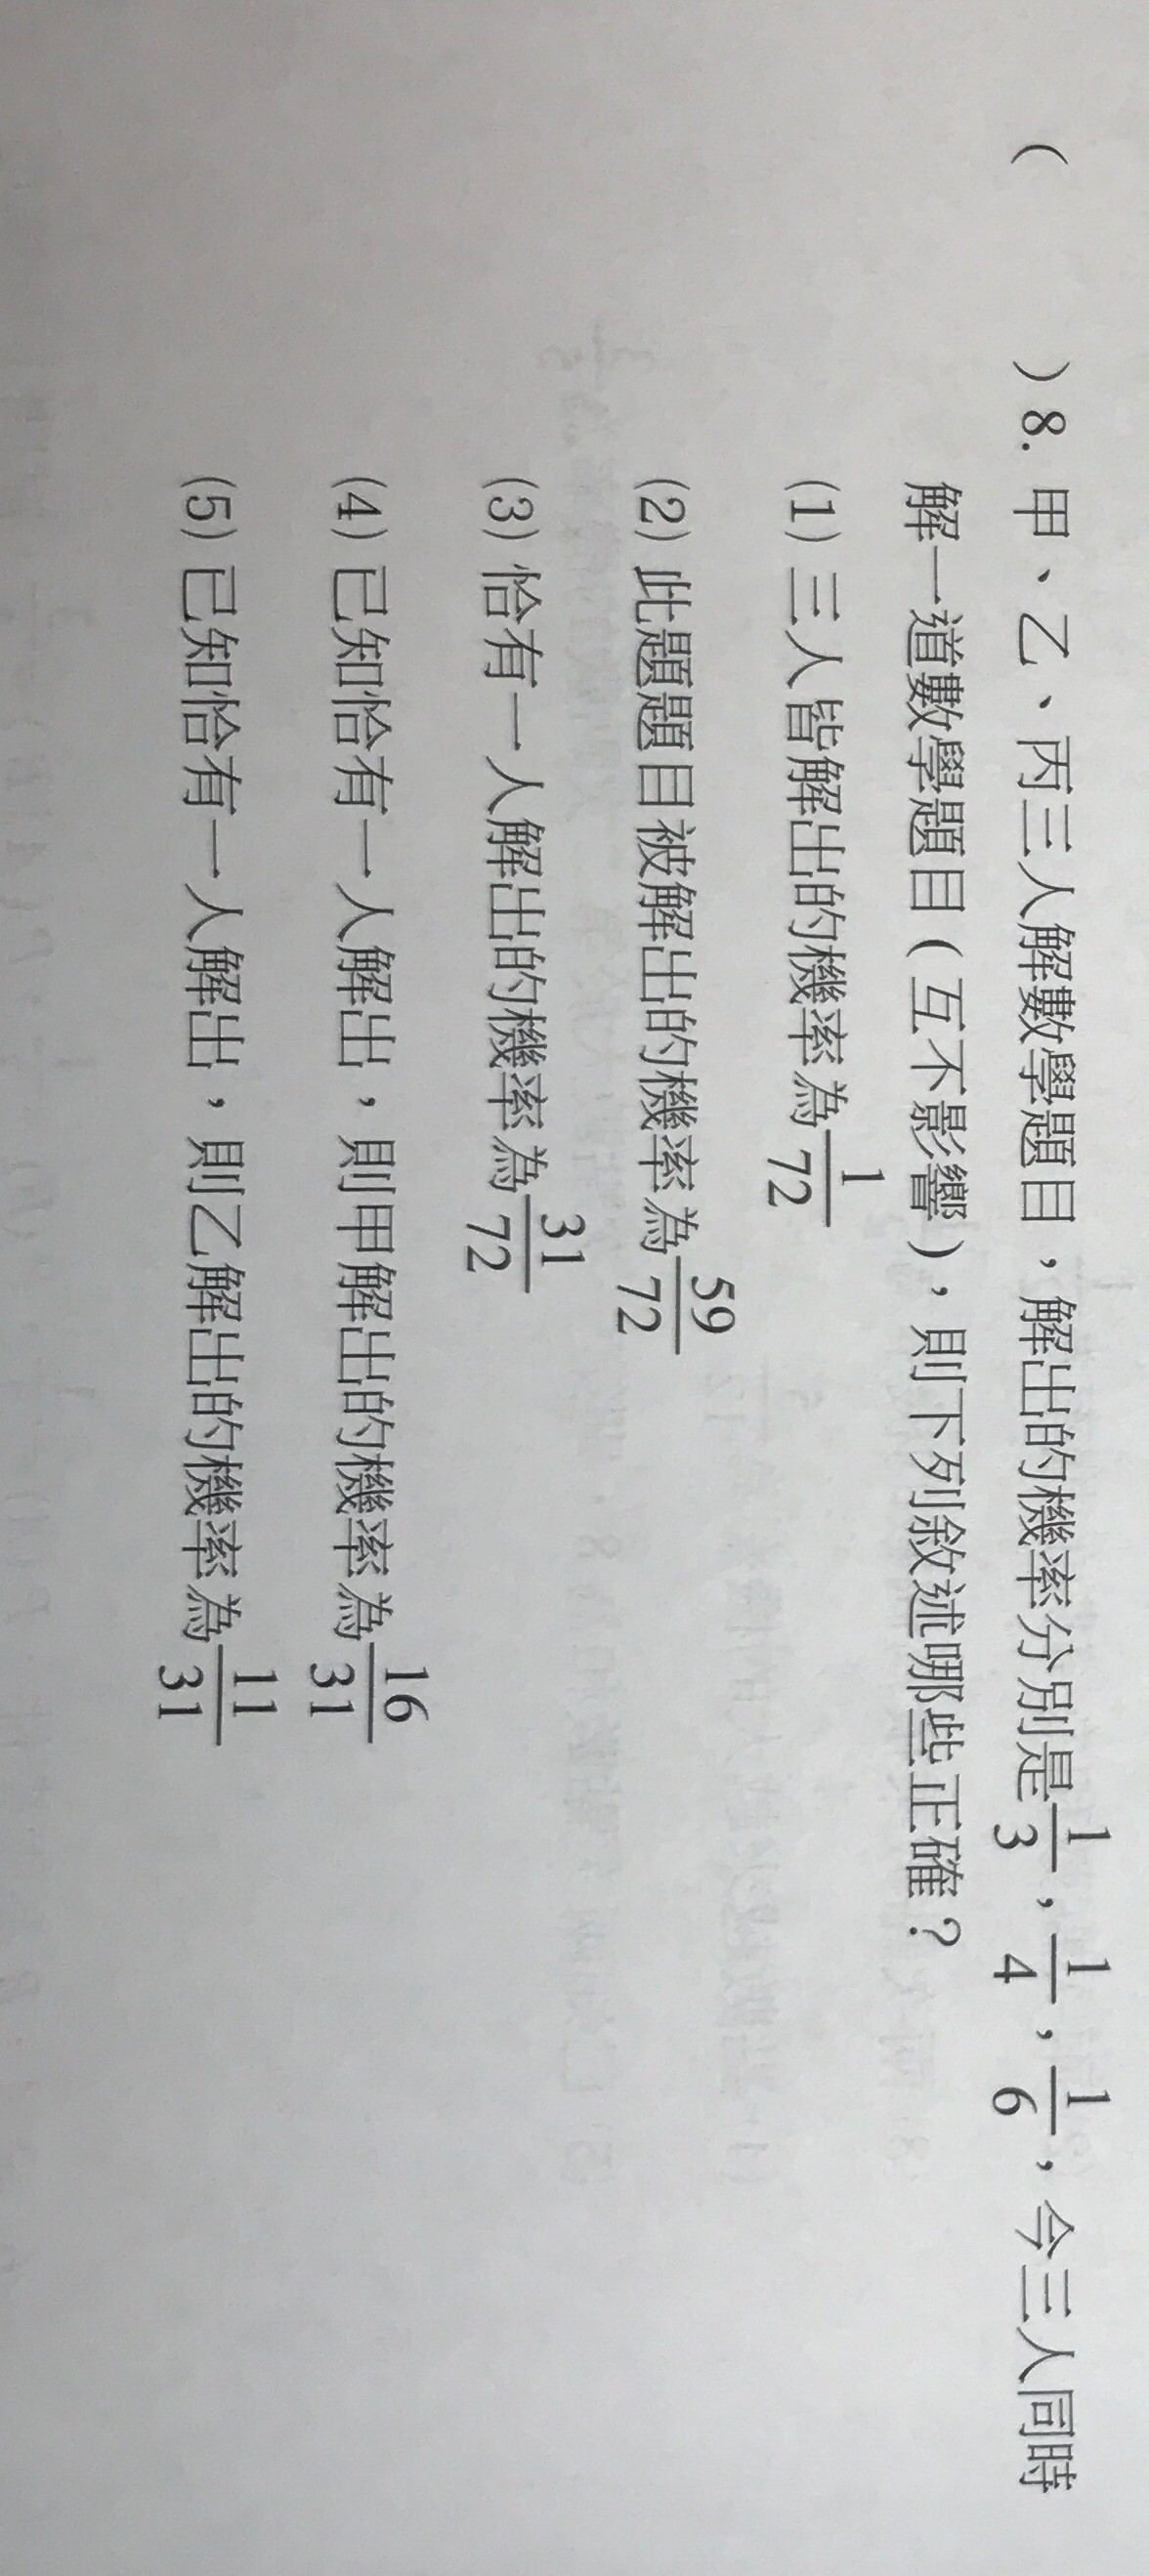 (　　)8. 甲、乙、丙三人解數學題目，解出的機率分別是1/3，1/4，1/6，今三人同時
解一道數學題目（互不影響），則下列敘述哪些正確？
(1) 三人皆解出的機率為1/72
(2) 此題題目被解出的機率為59/72
(3) 恰有一人解出的機率為31/72
(4) 已知恰有一人解出，則甲解出的機率為16/31
(5) 已知恰有一人解出，則乙解出的機率為11/31